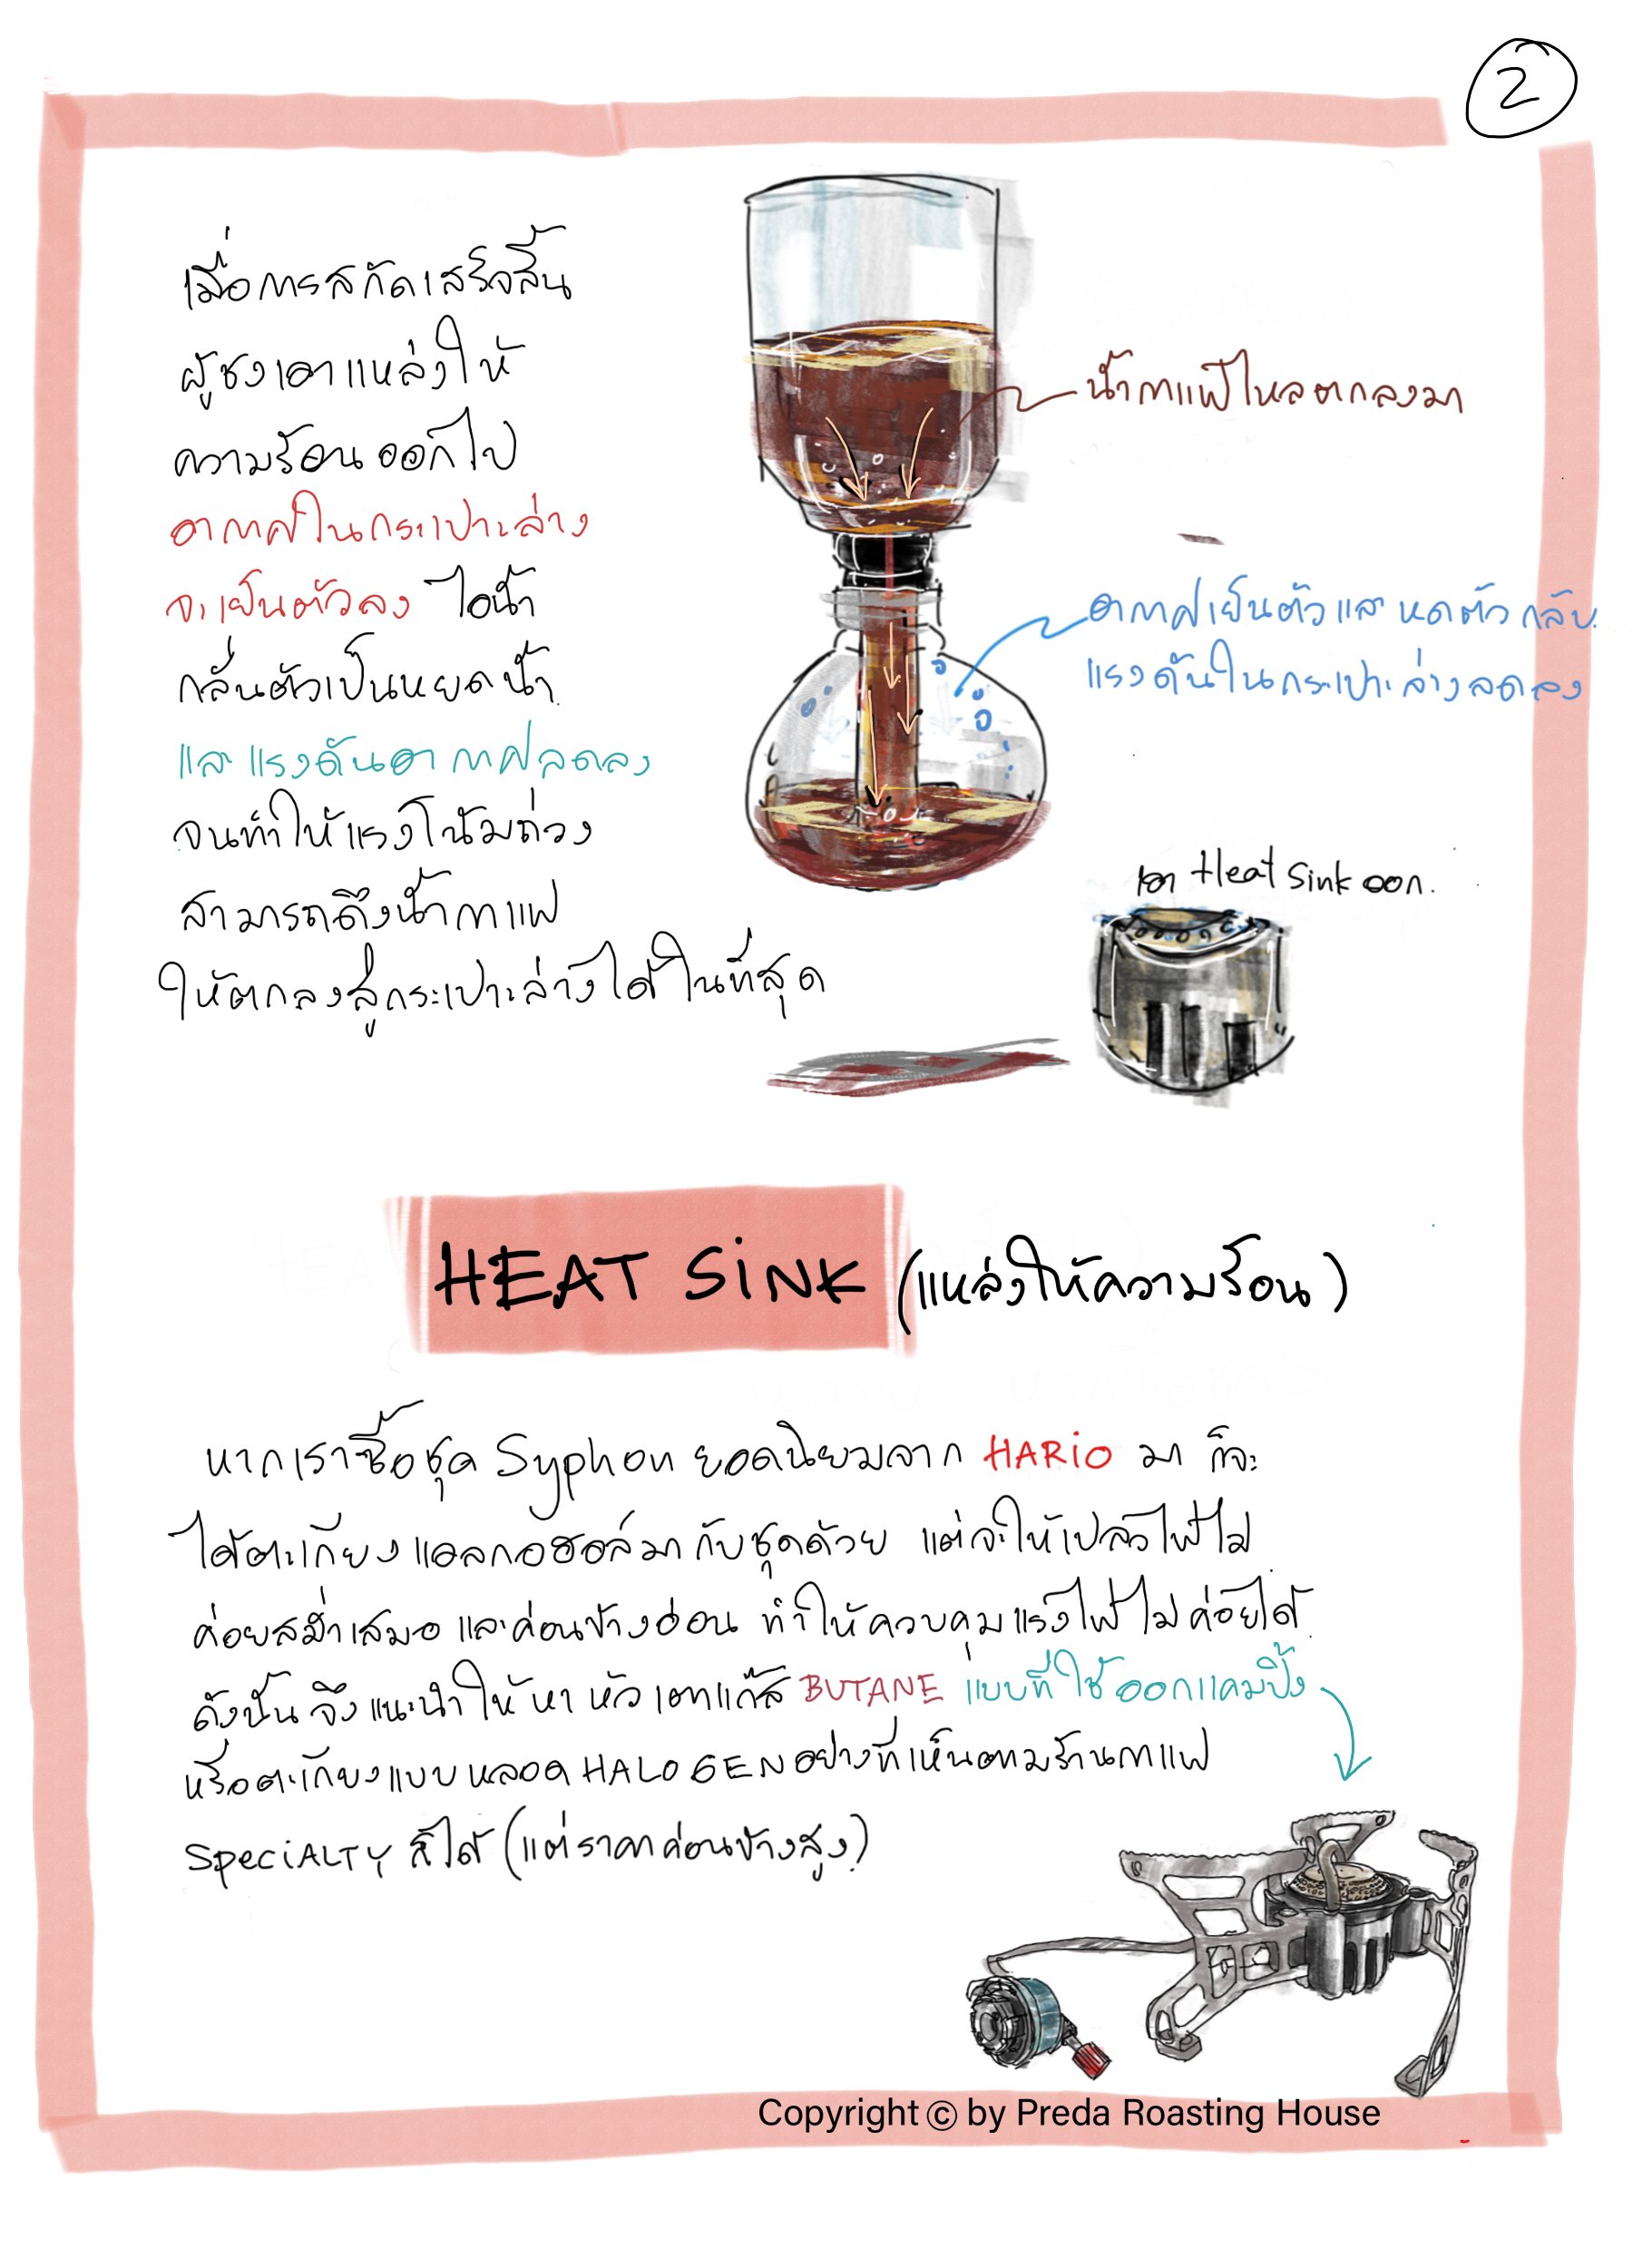 2
เมื่อการสกัดเสร็จสิ้น
ผู้ชงเอาแหล่งให้
ความร้อนออกไป
อากาศในกระเปาะล่าง
จะเย็นตัวลง ไอน้ำ
กลั่นตัวเป็นหยดน้ำ
และแรงดันอากาศลดลง
จนทำให้แรงโน้มถ่วง
สามารถดึงน้ำกาแฟ
ให้ตกลงสู่กระเปาะล่างได้ในที่สุด
น้ำกาแฟไหลตกลงมา
อากาศเย็นตัวและหดตัวกลับ
แรงดันในกระเปาะล่างลดลง
เอา Heat Sink ออก.
HEAT SiNK (แหล่งให้ความร้อน)
หากเราซื้อชุด Syphon ยอดนิยมจาก HARiO มา ก็จะ
ได้ตะเกียงแอลกอฮอล์มากับชุดด้วย แต่จะให้เปลวไฟไม่
ค่อยสม่ำเสมอ และค่อนข้างอ่อน ทำให้ควบคุมแรงไฟไม่ค่อยได้
ดังนั้น จึงแนะนำให้หา หัวเตาแก๊ส BUTANE แบบที่ใช้ออกแคมปิ้ง
หรือตะเกียงแบบหลอด HALOGEN อย่างที่เห็นตามร้านกาแฟ
SpeciALTY ก็ได้ (แต่ราคาค่อนข้างสูง)
Copyright © by Preda Roasting House